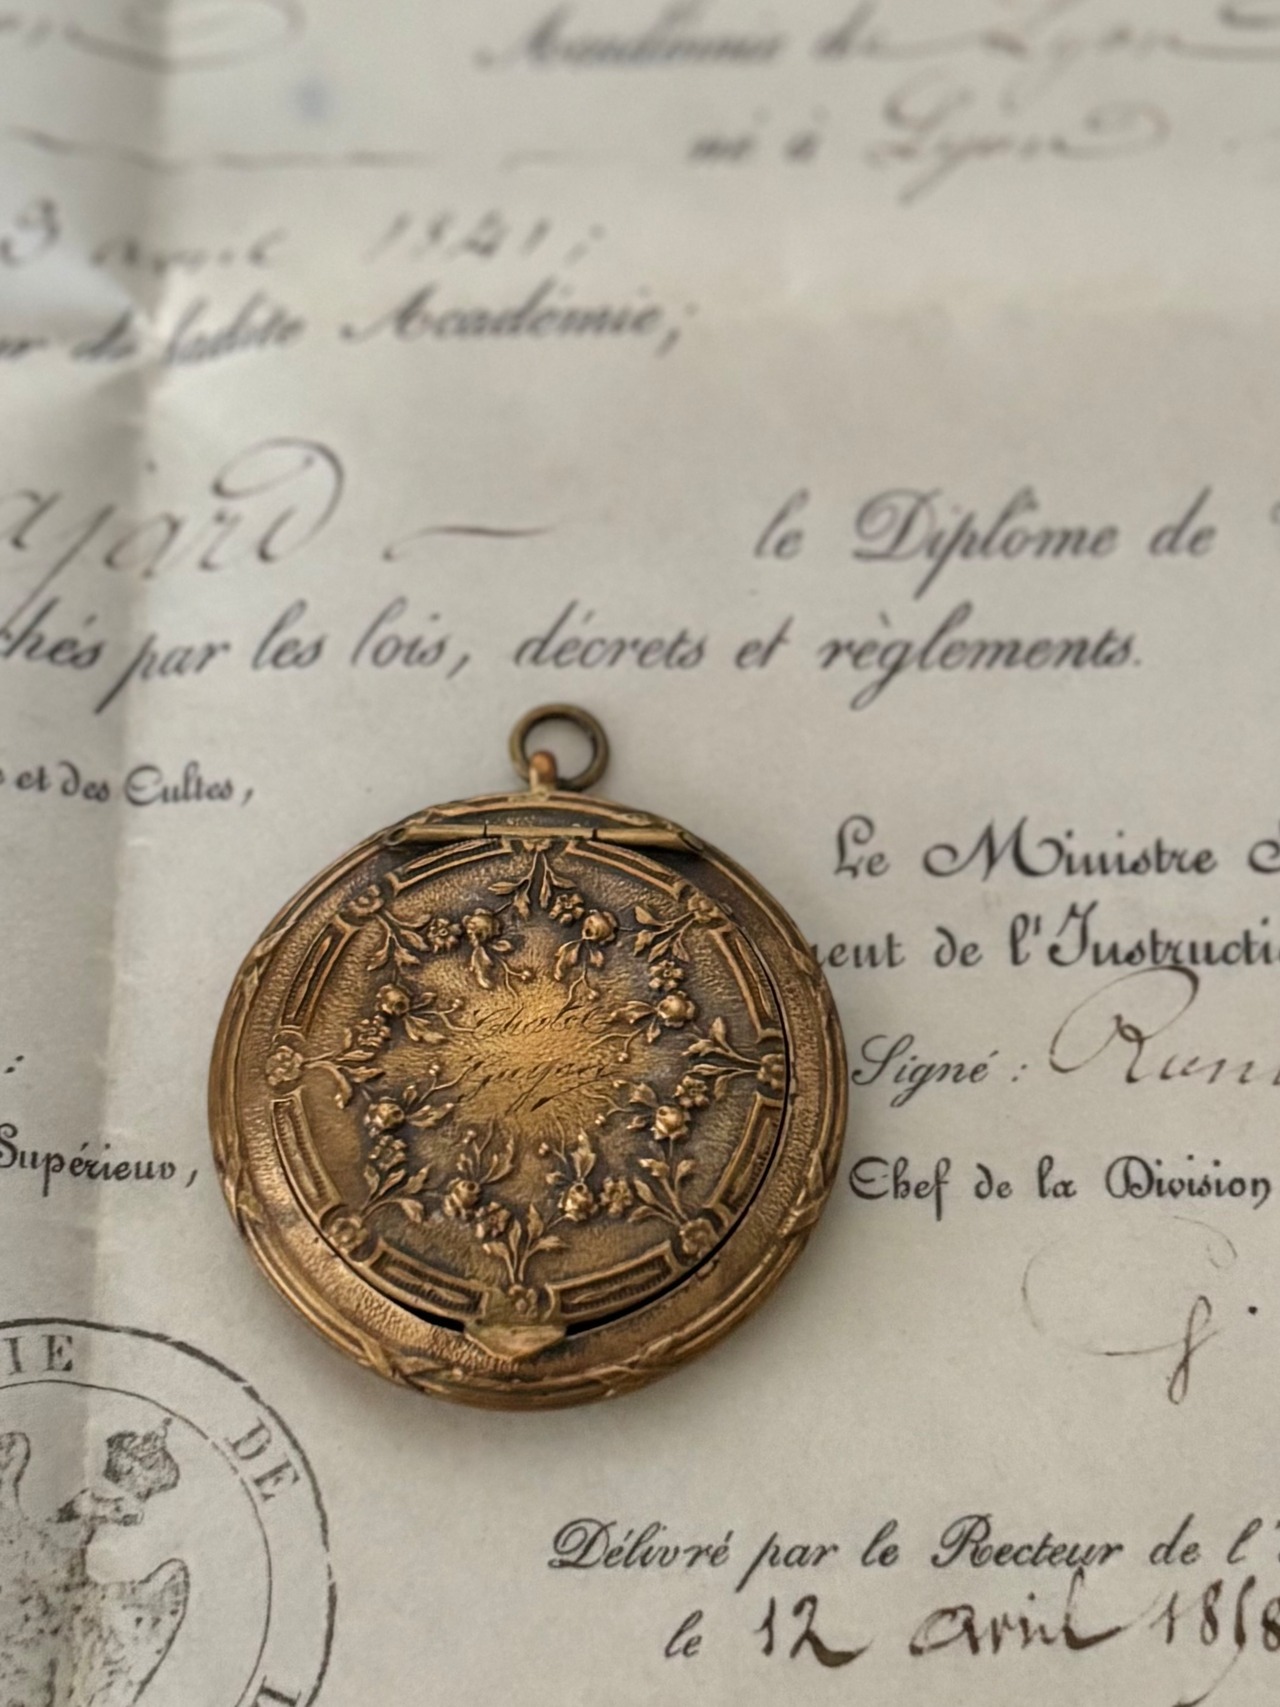 Académie de Lyon
né à Lyon
3 avril 1841;
de ladite Académie;
le Diplôme de
par les lois, décrets et règlements.
et des Cultes,
Le Ministre
de l'Instructi
Signé :
Supérieur,
Chef de la Division
IE DE
Délivré par le Recteur de l'
le 12 avril 1858